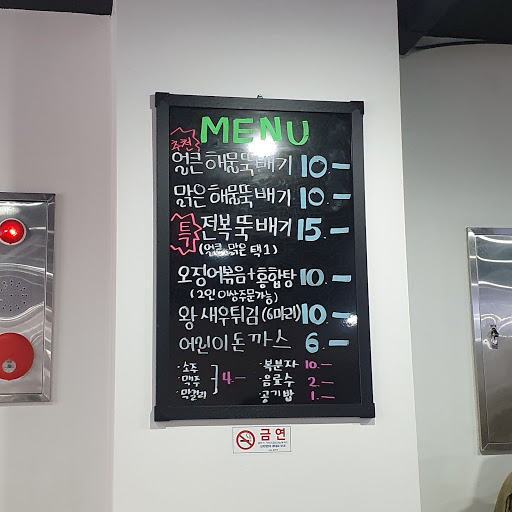 MENU
추천
얼큰해물뚝배기 10.-
맑은해물뚝배기 10.-
특 전복뚝배기 15.-
(얼큰, 맑은 택1)
오징어볶음+홍합탕 10.-
(2인이상주문가능)
왕새우튀김(6마리) 10.-
어린이돈까스 6.-
·소주
·맥주 4.-
·막걸리
·복분자 10.-
·음료수 2.-
·공기밥 1.-
금연